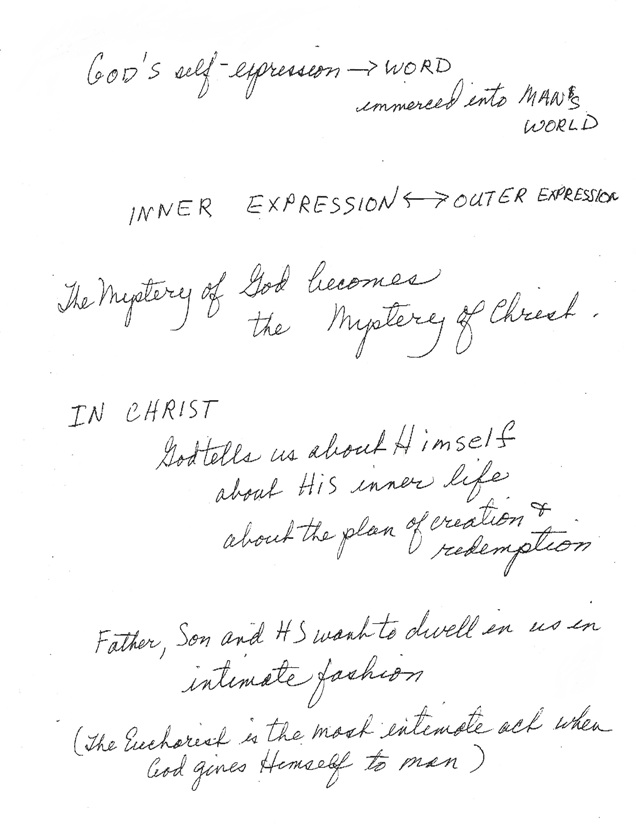 GOD'S self-expression → WORD
immerced into MAN'S
WORLD
INNER EXPRESSION ↔ OUTER EXPRESSION
The Mystery of God becomes
the Mystery of Christ.
IN CHRIST
God tells us about Himself
about His inner life
about the plan of creation &
redemption
Father, Son and HS want to dwell in us in
intimate fashion
(The Eucharist is the most intimate act when
God gives Himself to man)